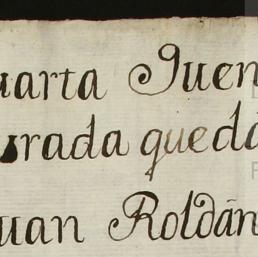 uarta Juen
urada queda
uan Roldán